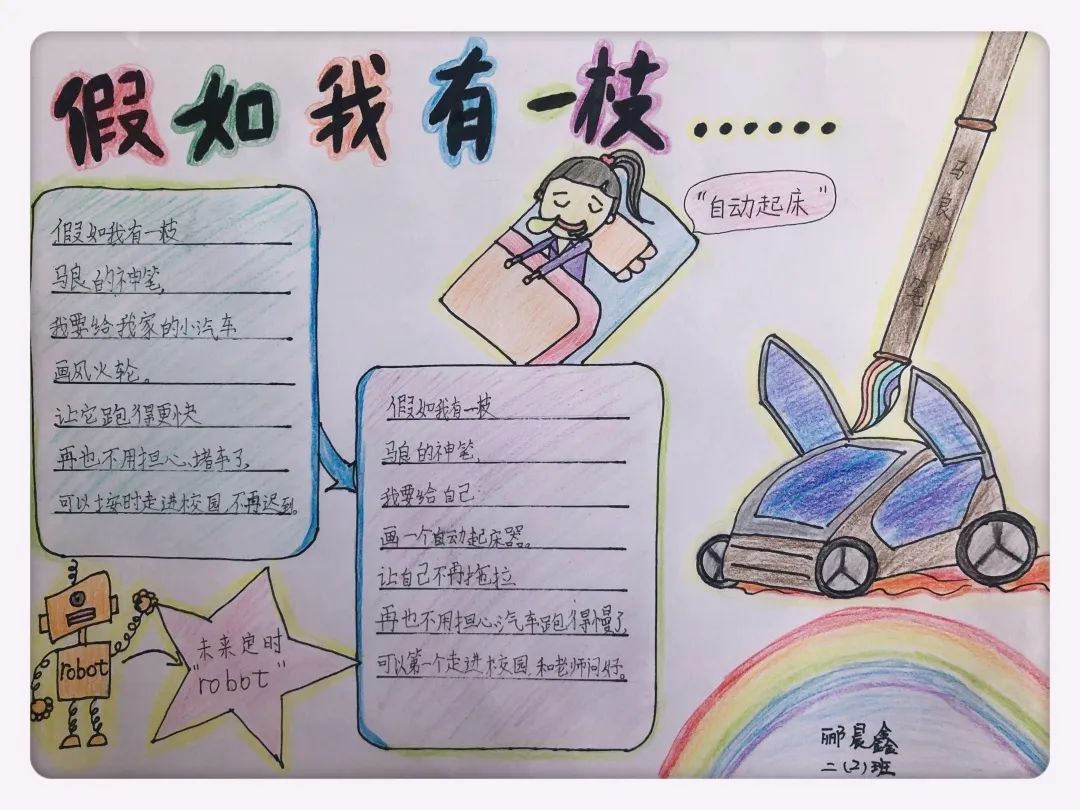 假如我有一枝……
假如我有一枝
马良的神笔,
我要给我家的小汽车
画风火轮。
让它跑得更快
再也不用担心堵车了,
可以按时走进校园,不再迟到。
"自动起床"
马良神笔
假如我有一枝
马良的神笔,
我要给自己
画一个自动起床器。
让自己不再拖拉
再也不用担心汽车跑得慢了,
可以第一个走进校园,和老师问好。
robot
"未来定时
robot"
郦晨鑫
二(2)班